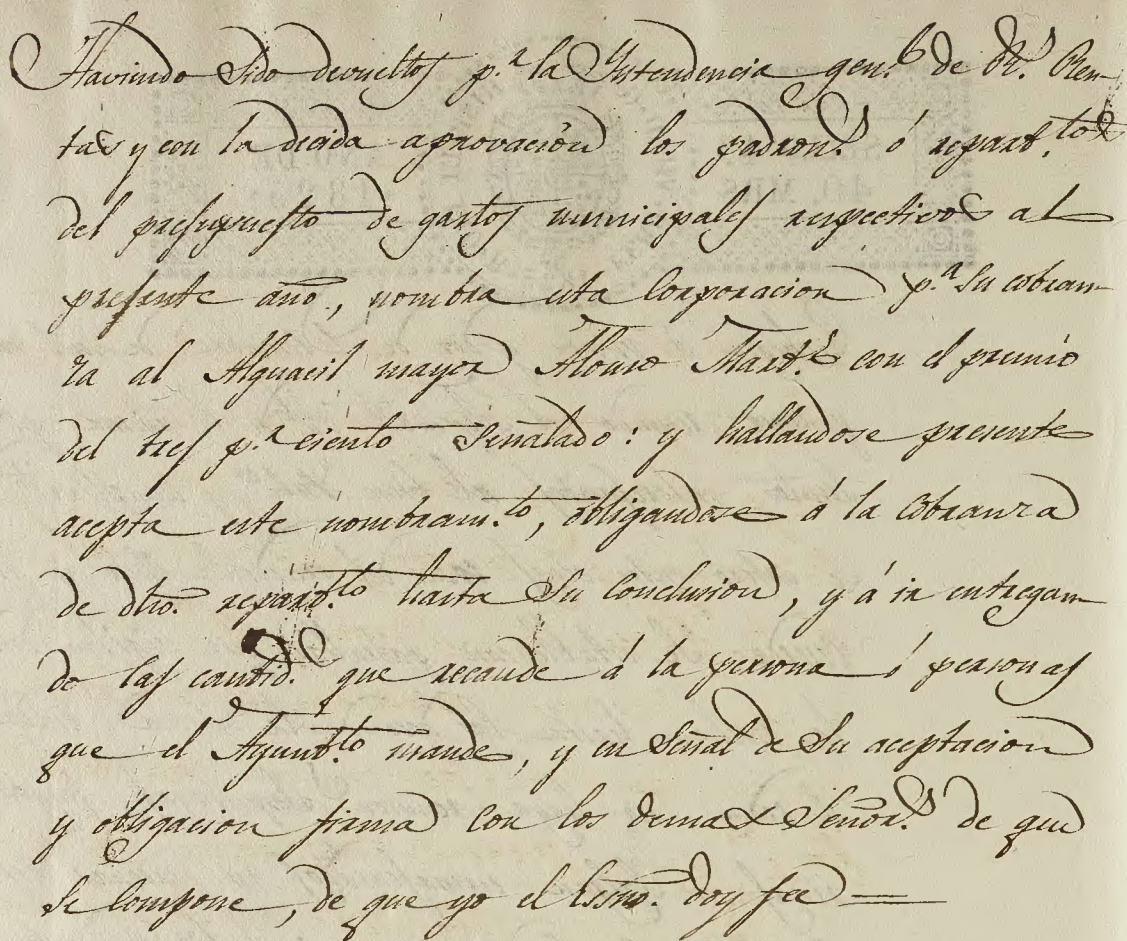 Haviendo sido devueltos p.ª la Yntendencia gen.l de R.s Ren-
tas y con la devida aprovación los padron.s ó repart.tos
del presupuesto de gastos municipales respectivos al
presente año, nombra esta Corporacion p.ª su cobran-
za al Alguacil mayor Alonso Mart.z con el premio
del tres p.r ciento señalado: y hallandose presente
acepta este nombram.to, obligandose á la cobranza
de dho. repart.to hasta su conclusion, y á ir entregan-
do las cantid.s que recaude á la persona ó personas
que el Ayunt.to mande, y en señal de su aceptacion
y obligacion firma con los demas Señor.s de que
se compone, de que yo el Essno. doy fee =